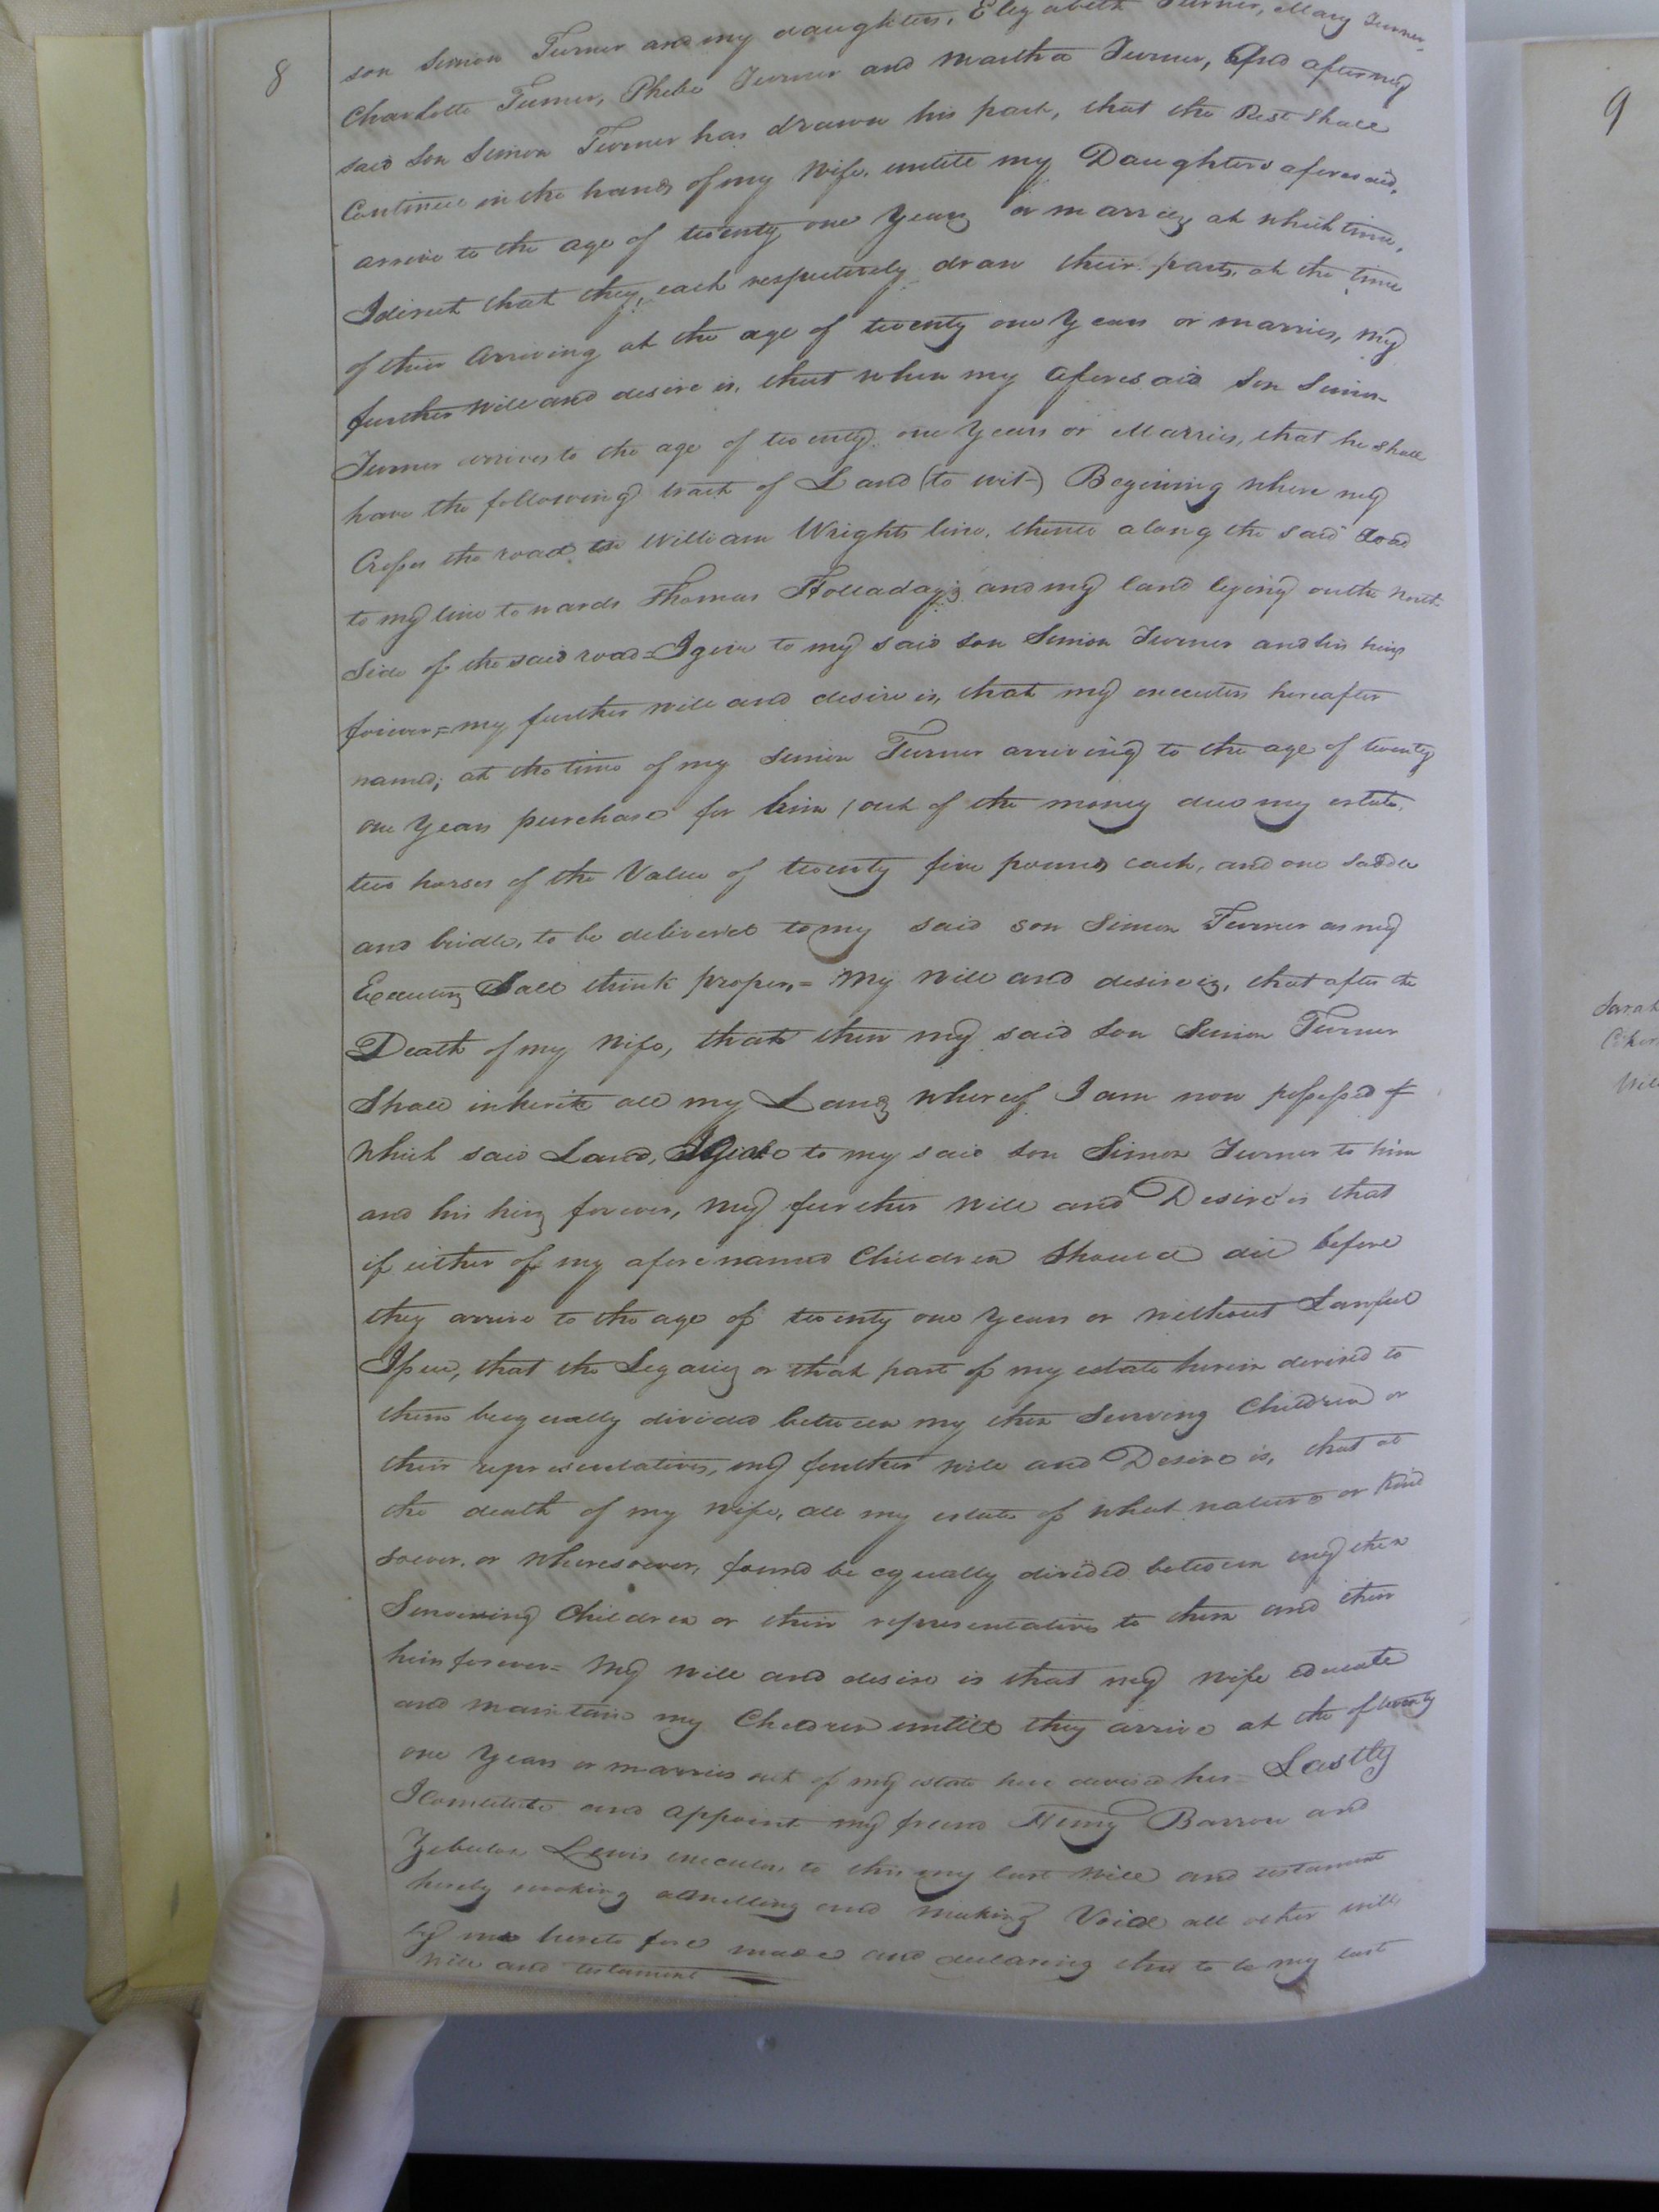 8
son Simon Turner and my daughters, Elizabeth Turner, Mary Turner,
Charlotte Turner, Phebe Turner and Martha Turner, And after my
said Son Simon Turner has drawn his part, that the Rest Shall
Continue in the hands of my Wife, untill my Daughters aforesaid,
arrive to the age of twenty one Years or marries at which time,
I direct that they, each respectively draw their parts, at the time
of their Arriving at the age of twenty one Years or marries, my
further Will and desire is, that when my aforesaid Son Simon
Turner arrives to the age of twenty one Years or Marries, that he shall
have the following tract of Land (to wit) Begining where my
Crosses the road William Wrights line, thence along the said Road
to my line towards Thomas Holladays and my land lying on the North
Side of the said road = I give to my said son Simon Turner and his heirs
forever, = my further will and desire is, that my executors hereafter
named; at the time of my Simon Turner arriving to the age of twenty
one Years purchase for him (out of the money due my estate,
two horses of the Value of twenty five pounds each, and one saddle
and bridle, to be delivered to my said son Simon Turner as my
Executors Shall think proper, = My will and desire is, that after the
Death of my Wife, that then my said Son Simon Turner
Shall inherite all my Lands whereof I am now possessed of
Which said Land, I Give to my said Son Simon Turner to him
and his heirs forever, My further Will and Desire is that
if either of my aforenamed Children Should die before
they arrive to the age of twenty one Years or without Lawful
Issue, that the Legacies or that part of my estate herein devised to
them be equally divided between my then Surviving Children or
their representatives, my further will and Desire is, that at
the death of my wife, all my estate of what nature or Kind
soever, or wheresoever, found be equally divided between my then
Surviving Children or their representatives to them and their
heirs forever = My will and desire is that my wife educate
and maintain my Children untill they arrive at the of twenty
one Years or marries out of my estate here devised her = Lastly
I Constitute and appoint my friend Henry Barrow and
Zebulon Lewis executors to this my last Will and testament
hereby making and making Void all other wills
by me heretofore made and declaring this to be my last
will and testament
9
Sarah